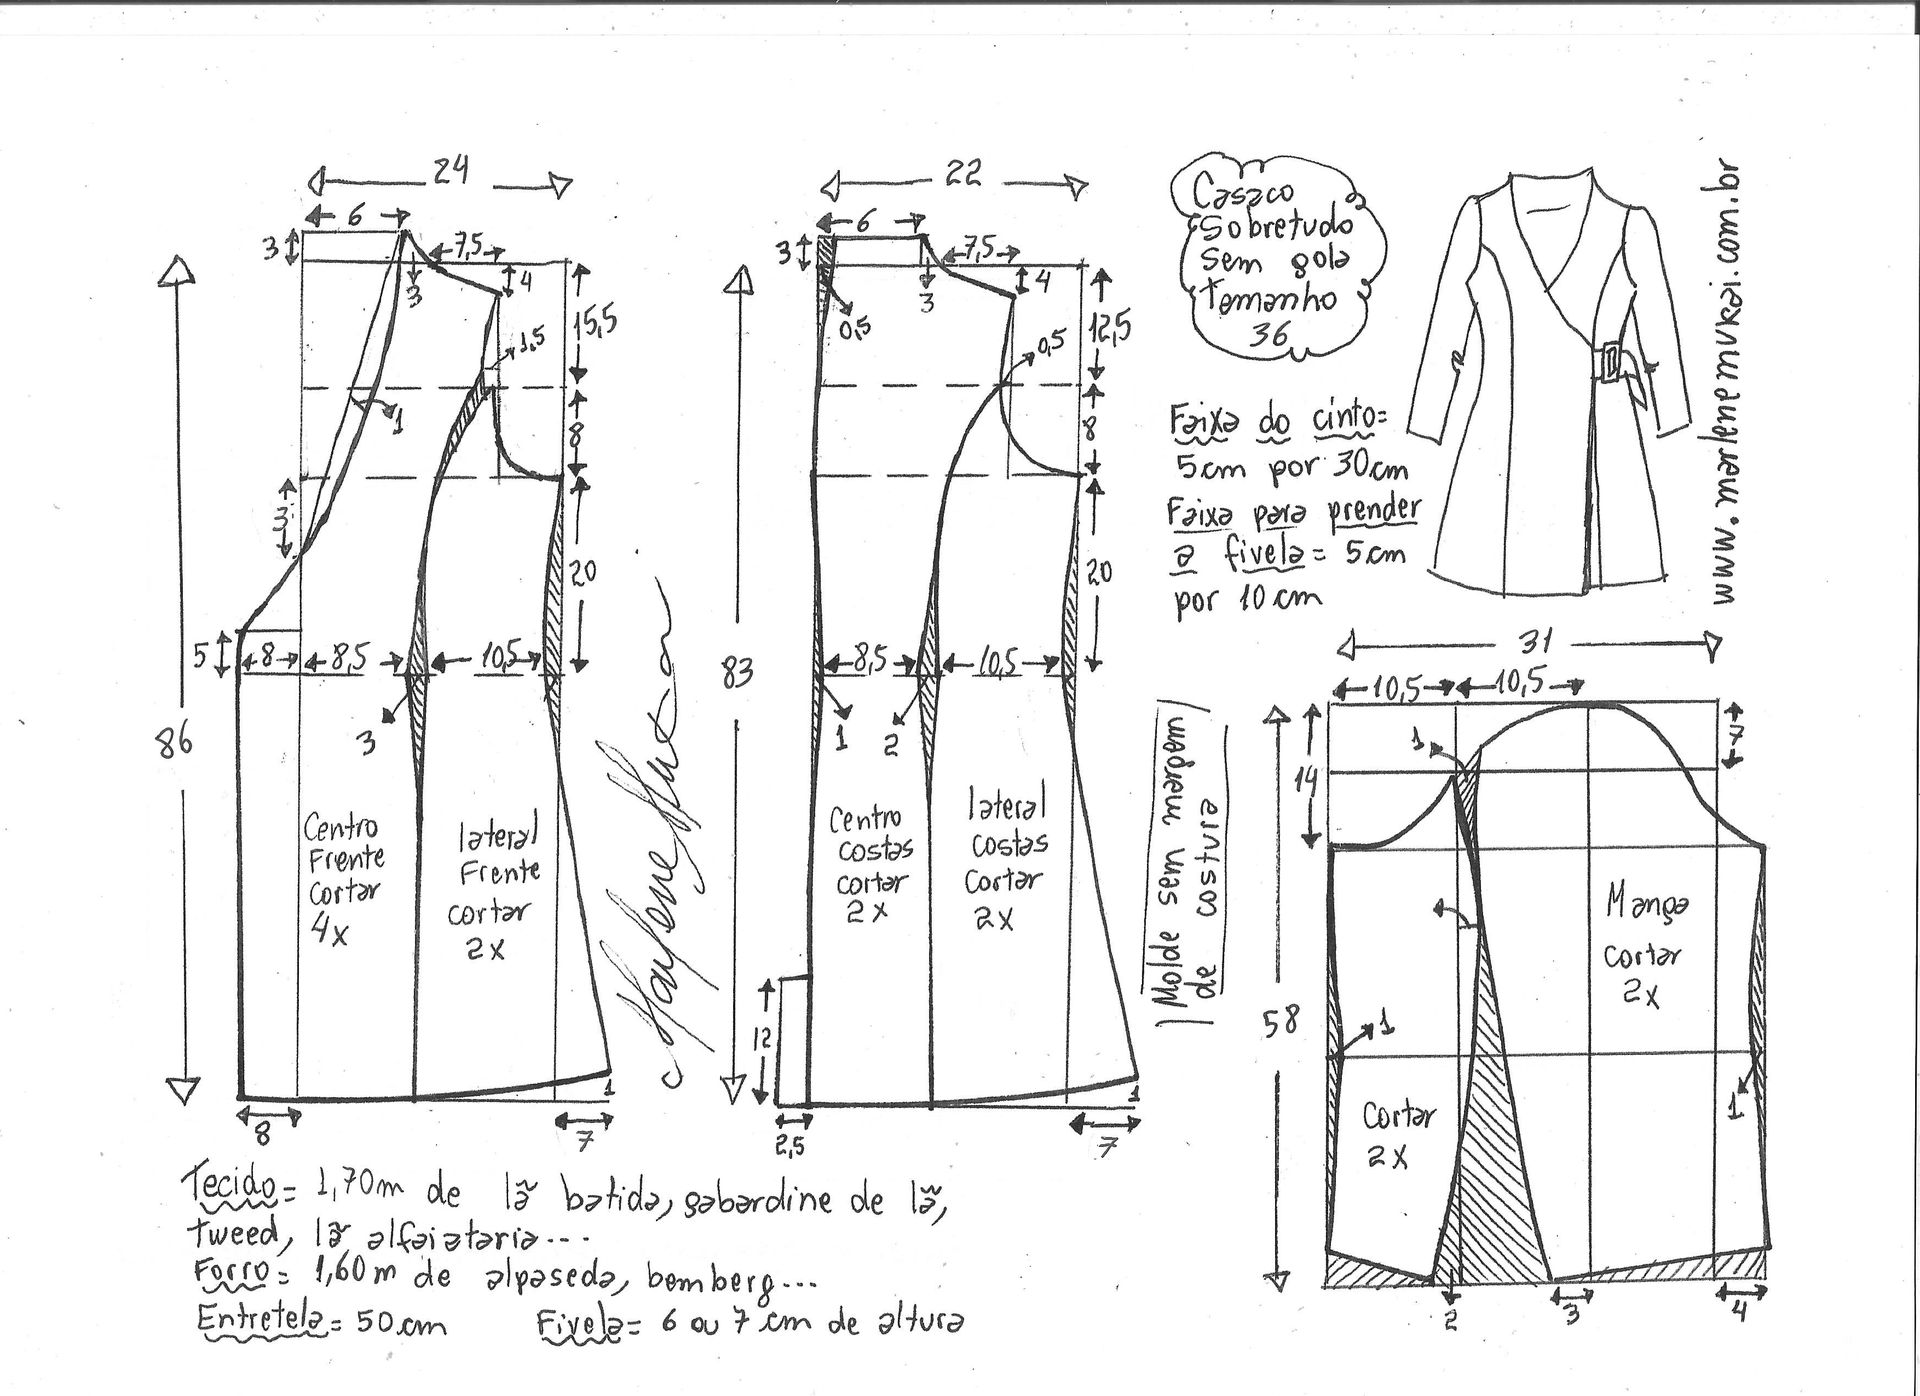 24
6
3
7,5
3
4
15,5
1,5
1
8
3
20
5
8
8,5
10,5
3
86
Centro
Frente
Cortar
4x
lateral
Frente
cortar
2x
8
7
1
Marlene Mukai
22
6
3
7,5
3
4
0,5
12,5
0,5
8
20
8,5
10,5
1
2
83
Centro
costas
cortar
2x
lateral
costas
Cortar
2x
12
2,5
7
1
Casaco
Sobretudo
sem gola
Tamanho
36
www.marlenemukai.com.br
Faixa do cinto=
5cm por 30cm
Faixa para prender
a fivela= 5cm
por 10cm
Molde sem margem
de costura
31
10,5
10,5
1
7
14
58
Manga
cortar
2x
1
1
Cortar
2x
2
3
4
Tecido= 1,70m de lã batida, gabardine de lã,
Tweed, lã alfaiataria...
Forro= 1,60m de alpaseda, bemberg...
Entretela= 50cm Fivela= 6 ou 7cm de altura